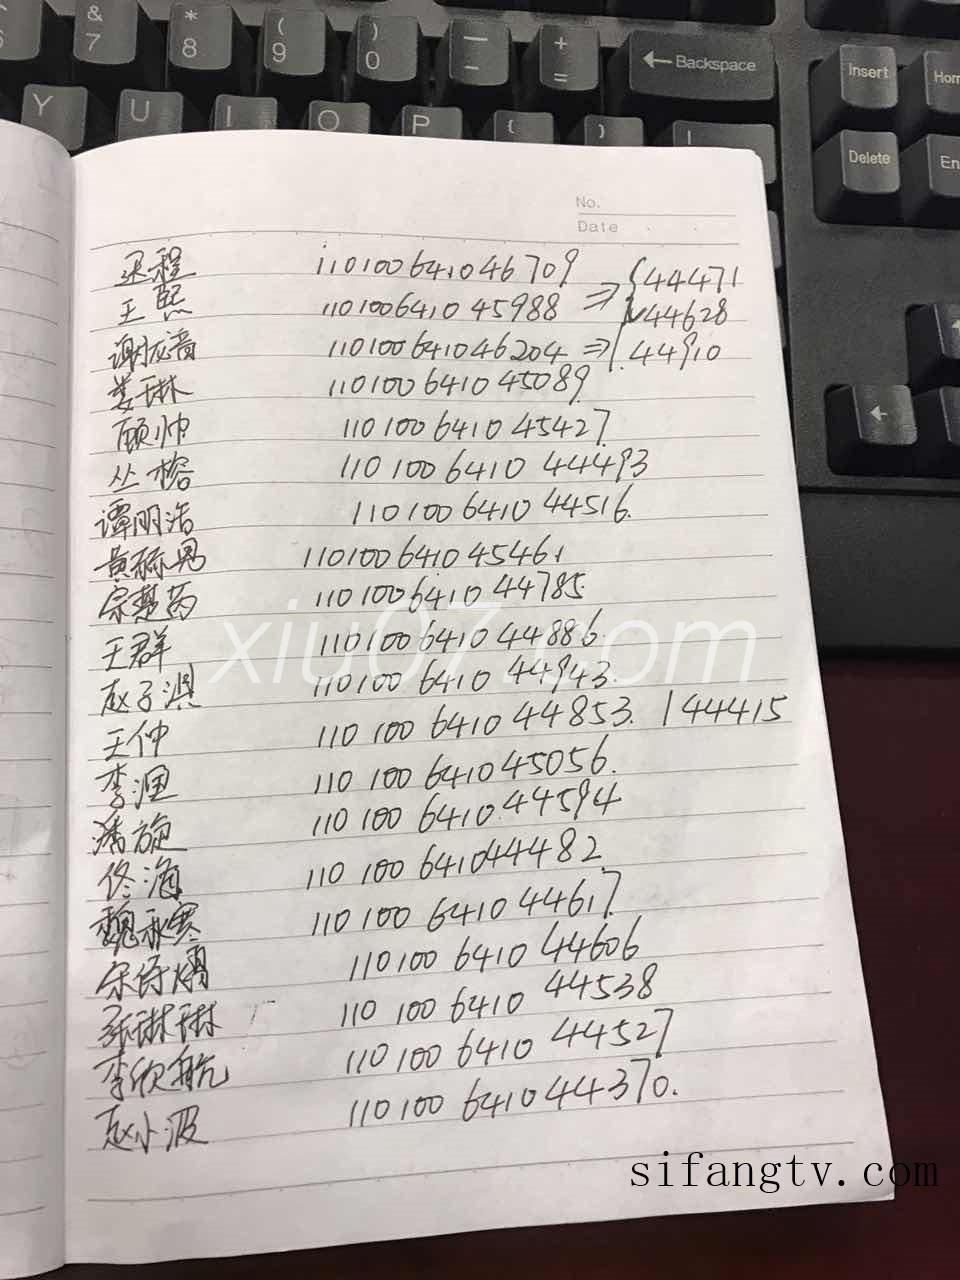 & 7
* 8
( 9
) 0
— -
+ =
← Backspace
Insert
Y U I O P { } |
Delete
No.
Date
程 110100641046709 {44471
王熙 110100641045988 ⇒ 44628
谢应音 110100641046204 ⇒ 44910
姜琳 110100641045089
顾帅 110100641045427.
丛榕 110100641044493
谭明浩 110100641044516.
黄 110100641045461
宗楚芮 110100641044785
王群 110100641044886
赵子淇 110100641044943.
王仲 110100641044853. 144415
李润 110100641045056.
旋 110100641044594
佟海 110100641044482
魏秋寒 110100641044617.
宋 110100641044606
张琳琳 110100641044538
李欣航 110100641044527
赵小波 110100641044370.
xiu07.com
sifangtv.com